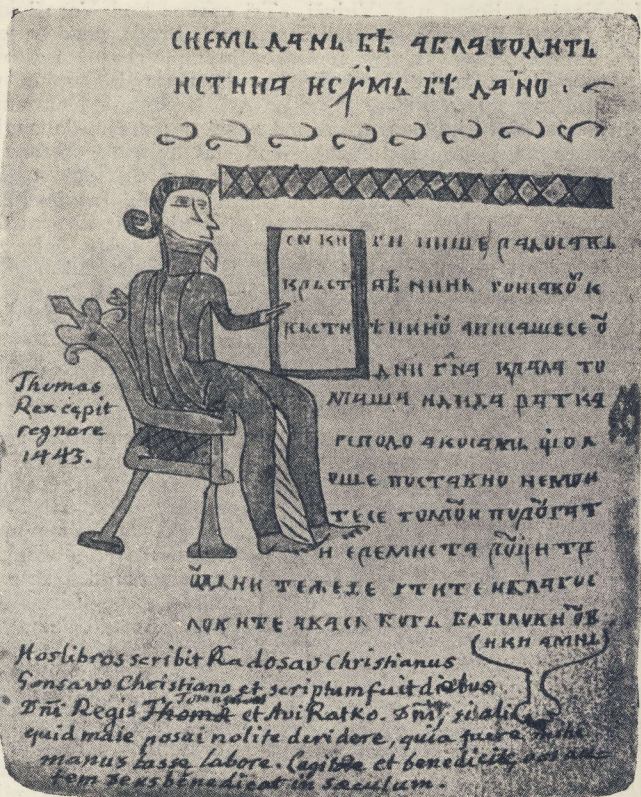 СИЕМЬ ДАНЬ БѢ А БЛАГОДИТЬ
ИСТИНА ИСХ҃МЬ БѢ ДАНО ·
СИ КНИ ГИ ПИШЕ РАДОСАВЬ
КРЬСТ ѢНИНЬ ГОИСАВУ К
РЬСТИ ѢНИНУ А ПИСАШЕ СЕ У
ДНИ Г҃НА КРАЛА ТО
МАША И ДИДА РАТКА
ГСПОДО АКО САМЬ ЩО Л
ОШЕ ПОСТАВИО НЕМОИ
ТЕ СЕ ТОМУИ ПОРУГАТ
И ЕРЕ МИ СТА РУЦИ ТР
УДНИ ТЕЖЕЋЕ ЧТИТЕ И БЛАГОС
ЛОВИТЕ А ВАСЬ БОГЬ
ИКИ АМНЬ
Thomas
Rex cępit
regnare
1443.
Hos libros scribit Radosav Christianus
Gonsavo Christiano et scriptum fuit diebus
Dñi Regis Thomæ et Avi Ratko. Dñi, si aliquid
quid male posui nolite deridere, quia fuere mihi
manus lassę labore. Legite et benedicite, vos autem
tem Deus benedicat in sæculum.